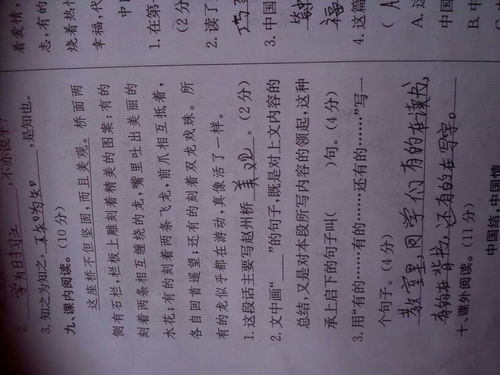 2. 学而时习之,不亦说乎?
3. 知之为知之,不知为不知,是知也。
九、课内阅读。(10分)
这座桥不但坚固,而且美观。桥面两
侧有石栏,栏板上雕刻着精美的图案:有的
刻着两条相互缠绕的龙,嘴里吐出美丽的
水花;有的刻着两条飞龙,前爪相互抵着,
各自回首遥望;还有的刻着双龙戏珠。所
有的龙似乎都在游动,真像活了一样。
1. 这段话主要写赵州桥美观。(2分)
2. 文中画“——”的句子,既是对上文内容的
总结,又是对本段所写内容的领起,这种
承上启下的句子叫( )句。(4分)
3. 用“有的……有的……还有的……”写一
个句子。(4分)
教室里,同学们有的在读书,
有的在背书,还有的在写字。
十、课外阅读。(11分)
中国结,中国情
着爱情,
志,有的
烧着热情
幸福,代
中国
1. 在第
(2分
2. 读了
3. 中国
4. 这篇
( A
A. 这
中国
B. 中
C.